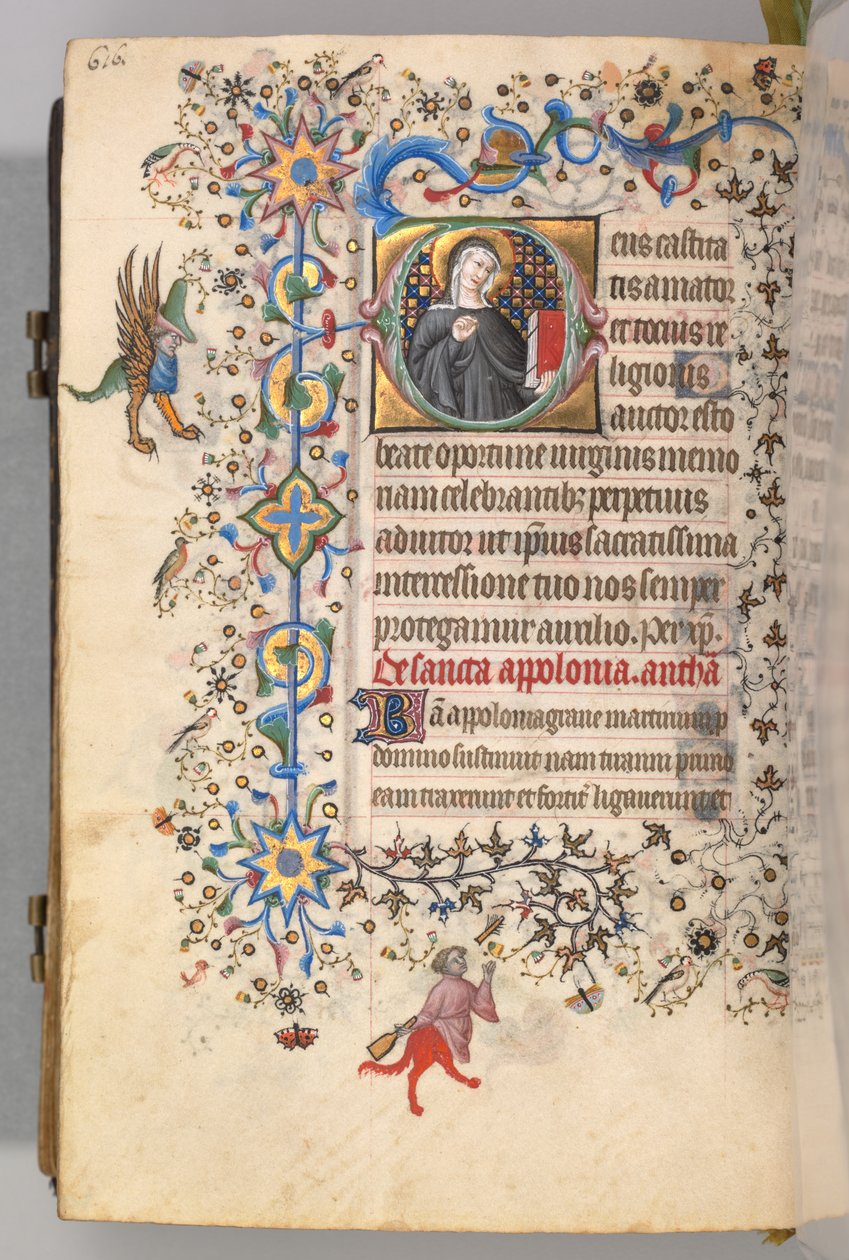 616.
Deus castita
tis amator
et tocius re
ligionis
auctor esto
beate oportune virginis memo
riam celebrantibꝫ perpetuus
adiutor ut ip̄ius sacratissima
intercessione tuo nos semper
protegamur auxilio. Per xp̄.
De sancta appolonia. anthā
Bā appolonia graue martirium p
domino sustinuit nam tiranni primo
eam traxerunt et fortit̄ ligauerunt et